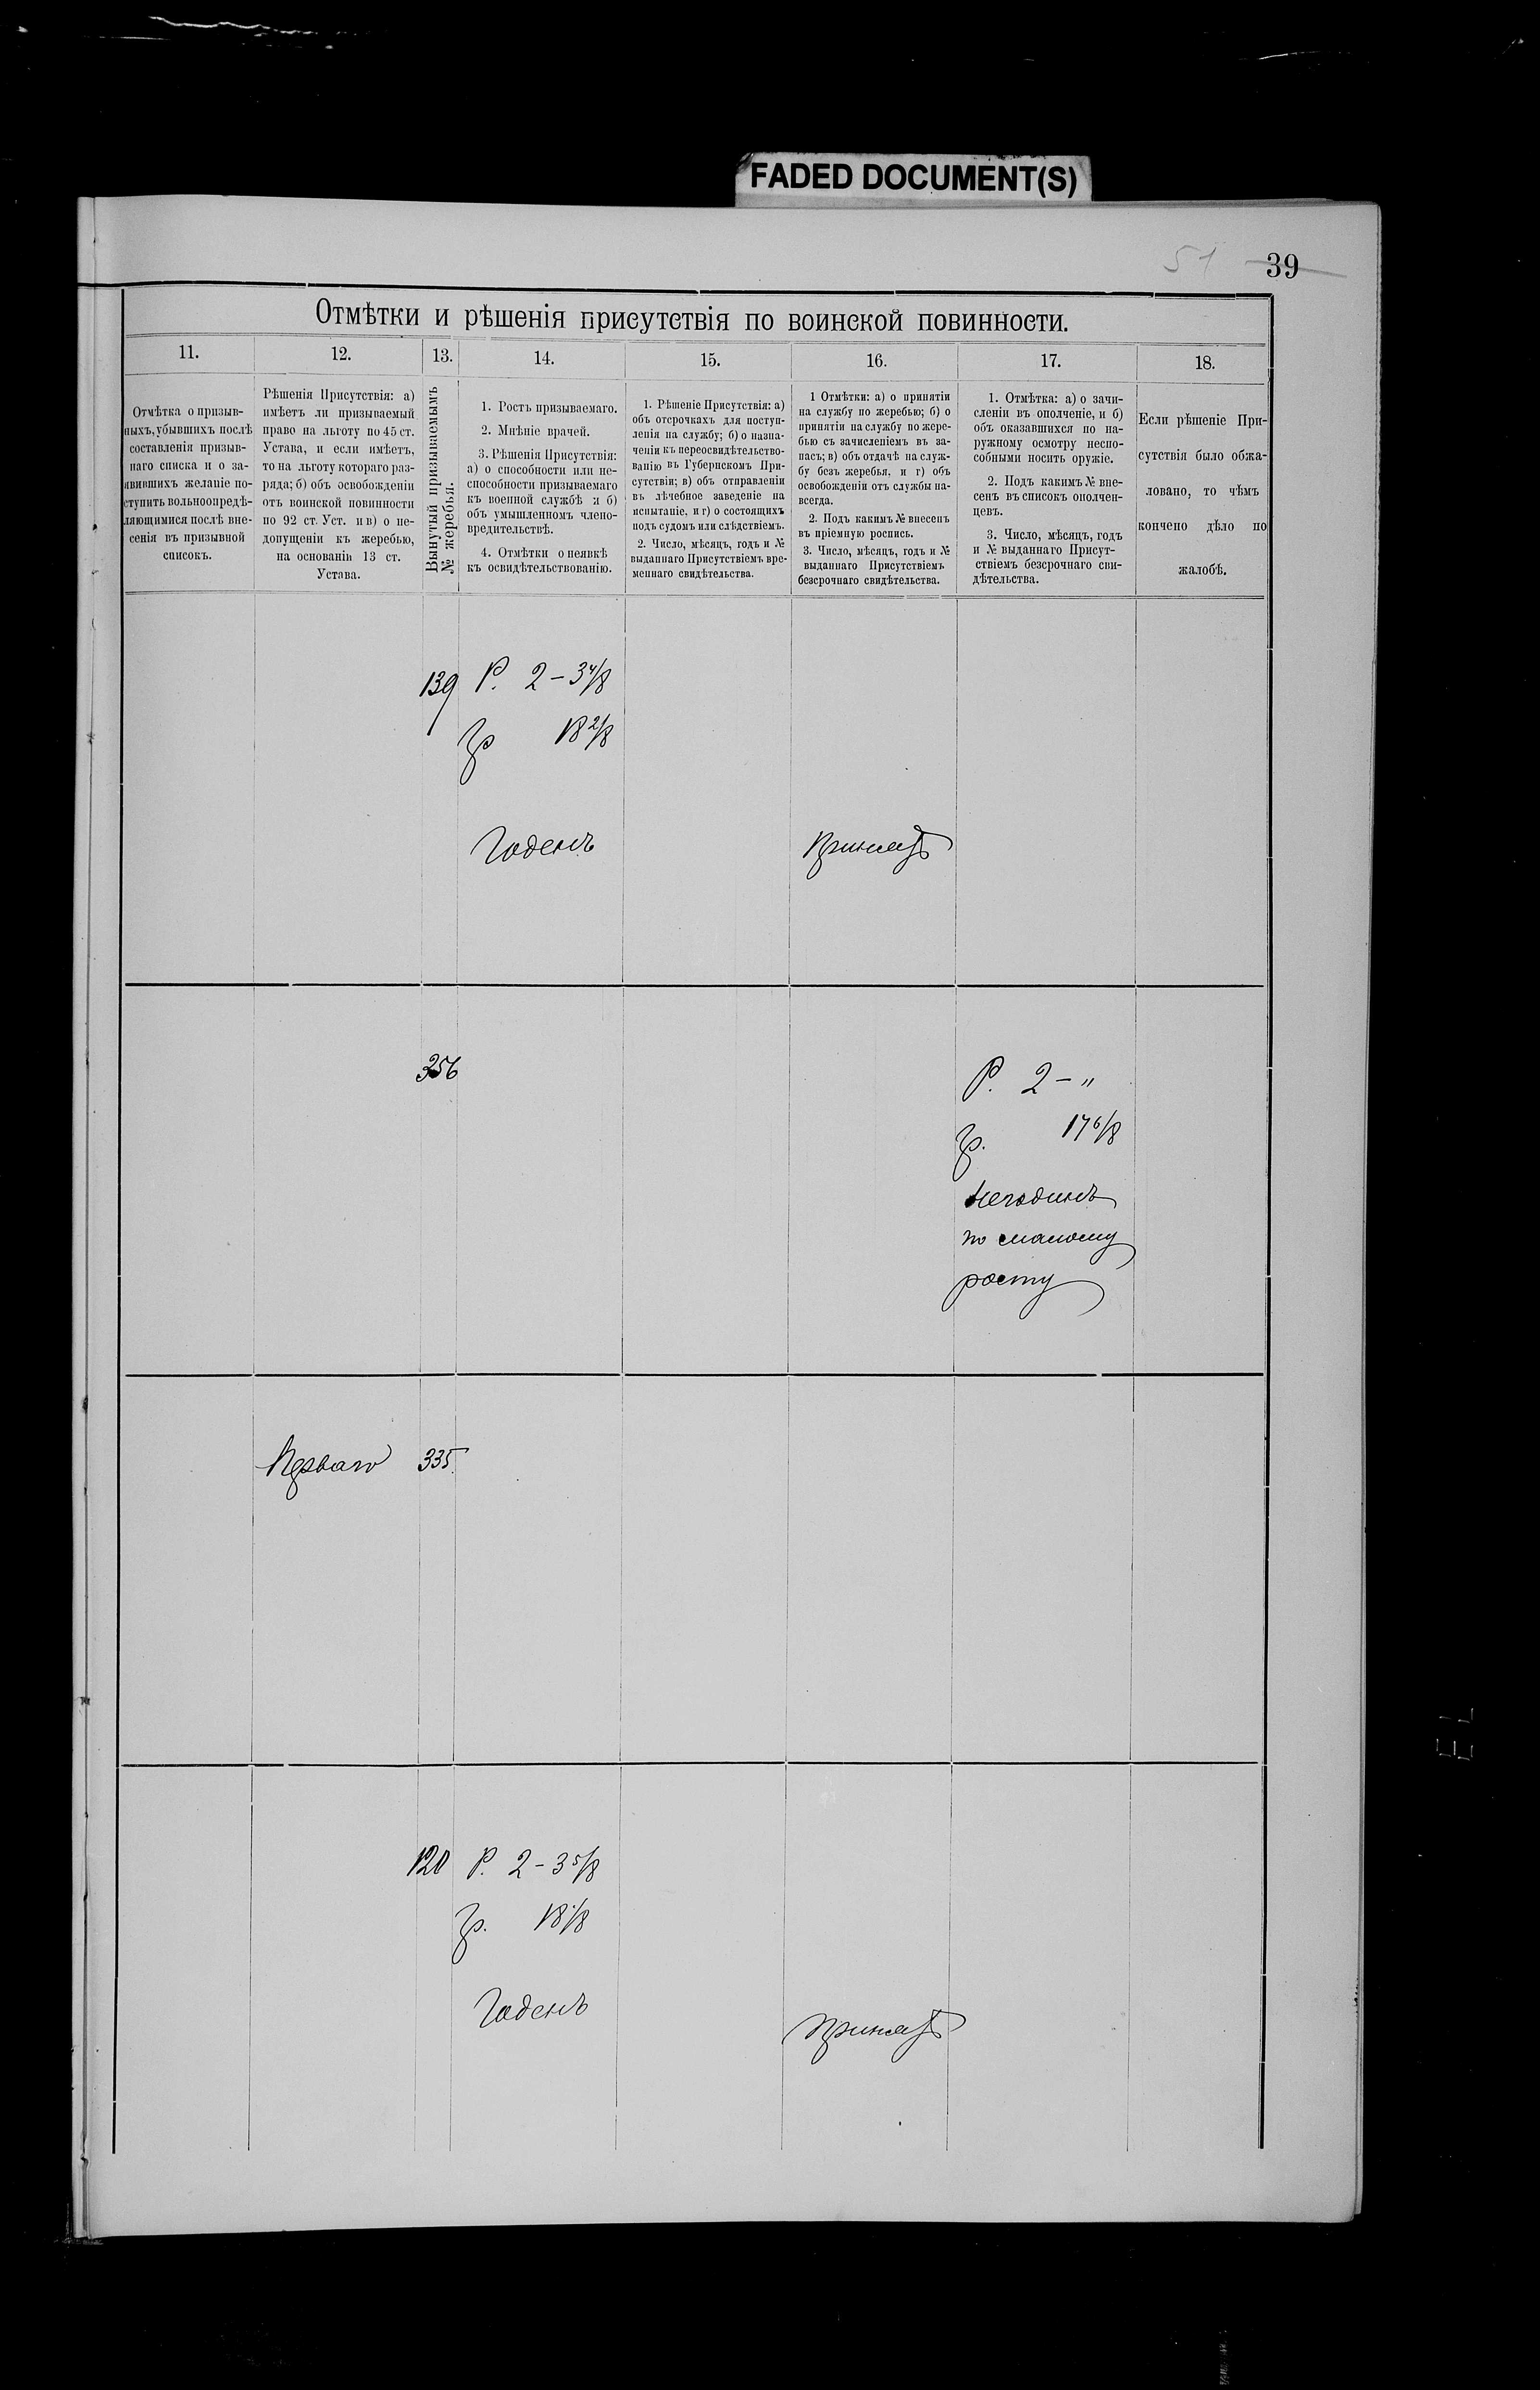 FADED DOCUMENT(S)
51
39
Отмѣтки и рѣшенія присутствія по воинской повинности.
11.
12.
13.
14.
15.
16.
17.
18.
Отмѣтка о призыв-
ныхъ, убывшихъ послѣ
составленія призыв-
наго списка и о за-
явившихъ желаніе по-
ступить вольноопредѣ-
ляющимися послѣ вне-
сенія въ призывной
списокъ.
Рѣшенія Присутствія: а)
имѣетъ ли призываемый
право на льготу по 45 ст.
Устава, и если имѣетъ,
то на льготу котораго раз-
ряда; б) объ освобожденіи
отъ воинской повинности
по 92 ст. Уст. и в) о не-
допущеніи къ жеребью,
на основаніи 13 ст.
Устава.
Вынутый призываемымъ
№ жеребья.
1. Ростъ призываемаго.
2. Мнѣніе врачей.
3. Рѣшенія Присутствія:
а) о способности или не-
способности призываемаго
къ военной службѣ и б)
объ умышленномъ члено-
вредительствѣ.
4. Отмѣтки о неявкѣ
къ освидѣтельствованію.
1. Рѣшеніе Присутствія: а)
объ отсрочкахъ для поступ-
ленія на службу; б) о назна-
ченіи къ переосвидѣтельство-
ванію въ Губернскомъ При-
сутствіи; в) объ отправленіи
въ лѣчебное заведеніе на
испытаніе, и г) о состоящихъ
подъ судомъ или слѣдствіемъ.
2. Число, мѣсяцъ, годъ и №
выданнаго Присутствіемъ вре-
меннаго свидѣтельства.
1 Отмѣтки: а) о принятіи
на службу по жеребью; б) о
принятіи на службу по жере-
бью съ зачисленіемъ въ за-
пасъ; в) объ отдачѣ на служ-
бу безъ жеребья, и г) объ
освобожденіи отъ службы на-
всегда.
2. Подъ какимъ № внесенъ
въ пріемную роспись.
3. Число, мѣсяцъ, годъ и №
выданнаго Присутствіемъ
безсрочнаго свидѣтельства.
1. Отмѣтка: а) о зачи-
сленіи въ ополченіе, и б)
объ оказавшихся по на-
ружному осмотру неспо-
собными носить оружіе.
2. Подъ какимъ № вне-
сенъ въ списокъ ополчен-
цевъ.
3. Число, мѣсяцъ, годъ
и № выданнаго Присут-
ствіемъ безсрочнаго сви-
дѣтельства.
Если рѣшеніе При-
сутствія было обжа-
ловано, то чѣмъ
кончено дѣло по
жалобѣ.
139 Р. 2 - 3 4/8
Гр 18 2/8
Годенъ Принятъ
356 Р. 2 - "
Гр. 17 6/8
Негоденъ
по малому
росту
Перваго 335.
120 Р. 2 - 3 5/8
Гр. 18 1/8
Годенъ
Принятъ